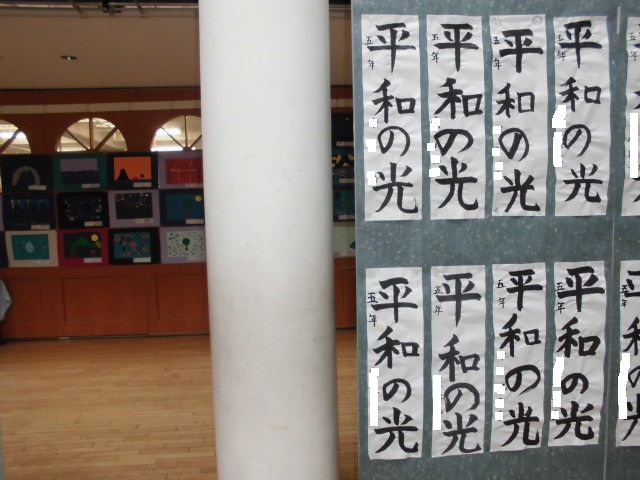 平和の光
五年
平和の光
五年
平和の光
五年
平和の光
五年
平和の光
五年
平和の光
五年
平和の光
五年
平和の光
五年